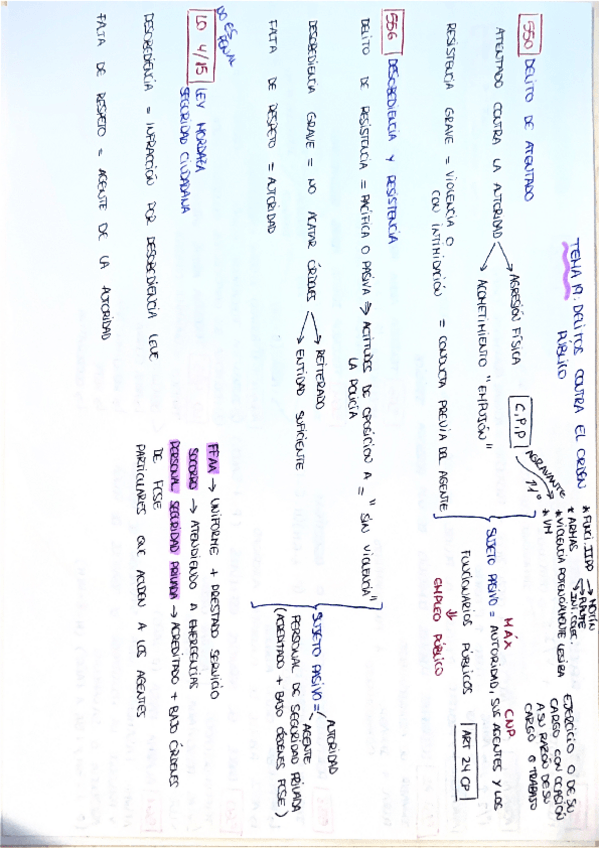 TEMA 19: DELITOS CONTRA EL ORDEN
PÚBLICO
550 DELITO DE ATENTADO
ATENTADO CONTRA LA AUTORIDAD
AGRESIÓN FÍSICA
ACOMETIMIENTO "EMPUJÓN"
RESISTENCIA GRAVE = VIOLENCIA O
CON INTIMIDACIÓN = CONDUCTA PREVIA DEL AGENTE
C,P,P
AGRAVANTE
* FUNCI. IIPP → MOTÍN
PLANTE
* ARMAS
* VIOLENCIA POTENCIALMENTE LESIVA
* VM
EJERCICIO O DE SU
CARGO CON OCASIÓN
A SU RAZÓN DE SU
CARGO O TRABAJO
MÁX CNP
SUJETO PASIVO = AUTORIDAD, SUS AGENTES Y LOS
FUNCIONARIOS PÚBLICOS
ART 24 CP
EMPLEO PÚBLICO
556 DESOBEDIENCIA Y RESISTENCIA
DELITO DE RESISTENCIA = PACÍFICA O PASIVA → ACTITUDES DE OPOSICION A = "SIN VIOLENCIA"
LA POLICÍA
DESOBEDIENCIA GRAVE = NO ACATAR ÓRDENES
REITERADO
ENTIDAD SUFICIENTE
FALTA DE RESPETO = AUTORIDAD
SUJETO PASIVO =
AUTORIDAD
AGENTE
PERSONAL DE SEGURIDAD PRIVADA
(ACREDITADO + BAJO ÓRDENES FCSE)
FFAA → UNIFORME + PRESTADO SERVICIO
SOCORRO → ATENDIENDO A EMERGENCIAS
PERSONAL SEGURIDAD PRIVADA → ACREDITADO + BAJO ÓRDENES
DE FCSE
PARTICULARES QUE ACUDEN A LOS AGENTES
NO ES
PENAL
LO 4/15 LEY MORDAZA
SEGURIDAD CIUDADANA
DESOBEDIENCIA = INFRACCIÓN POR DESOBEDIENCIA LEVE
FALTA DE RESPETO = AGENTE DE LA AUTORIDAD